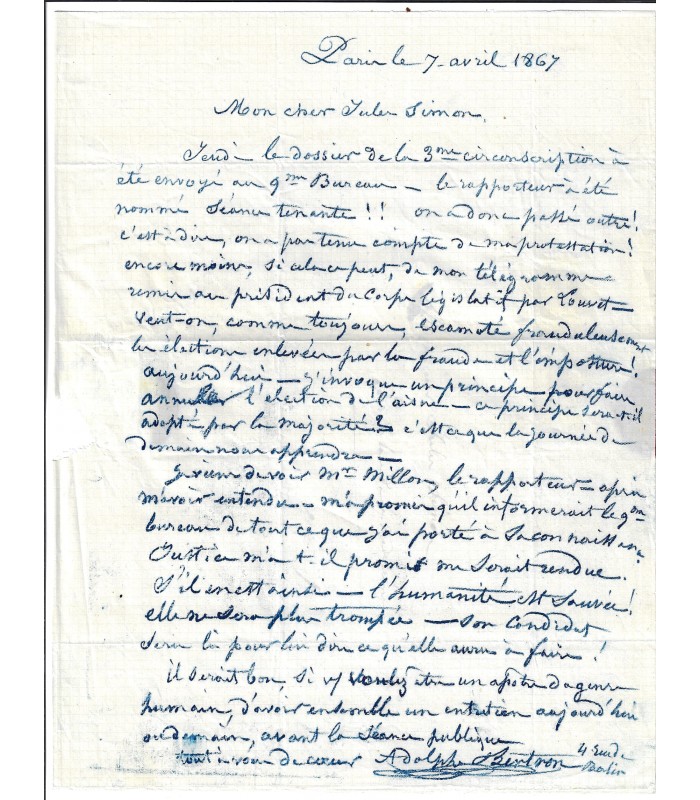 Paris le 7 avril 1867
Mon cher Jules Simon,
Jeudi le dossier de la 3me circonscription à
été envoyé au 9me Bureau — le rapporteur à été
nommé séance tenante !! on a donc passé outre !
c'est à dire, on a pas tenu compte de ma protestation !
encore moins, si cela ce peut, de mon télégramme
remis au président du Corps législatif par Louvet —
veut-on, comme toujours, escamoté frauduleusement
les élections enlevées par la fraude et l'imposture !
aujourd'hui — j'invoque un principe pour faire
annuller l'élection de l'aisne — ce principe sera-t-il
adopté par la majorité ? c'est ce que la journée de
demain nous apprendra —
Je viens de voir Mr Millon, le rapporteur — après
m'avoir entendu — m'a promis qu'il informerait le 9me
bureau de tout ce que j'ai porté à sa connaissance
Justice m'a t-il promis me serait rendue.
S'il en est ainsi — l'humanité est sauvée !
elle ne sera plus trompée — son candidat
sera là pour lui dire ce qu'elle aura à faire !
il serait bon, si v/ voulez être un apôtre du genre
humain, d'avoir ensemble un entretien aujourd'hui
ou demain, avant la séance publique
tout à vous de cœur Adolphe Bertron 4 rue de